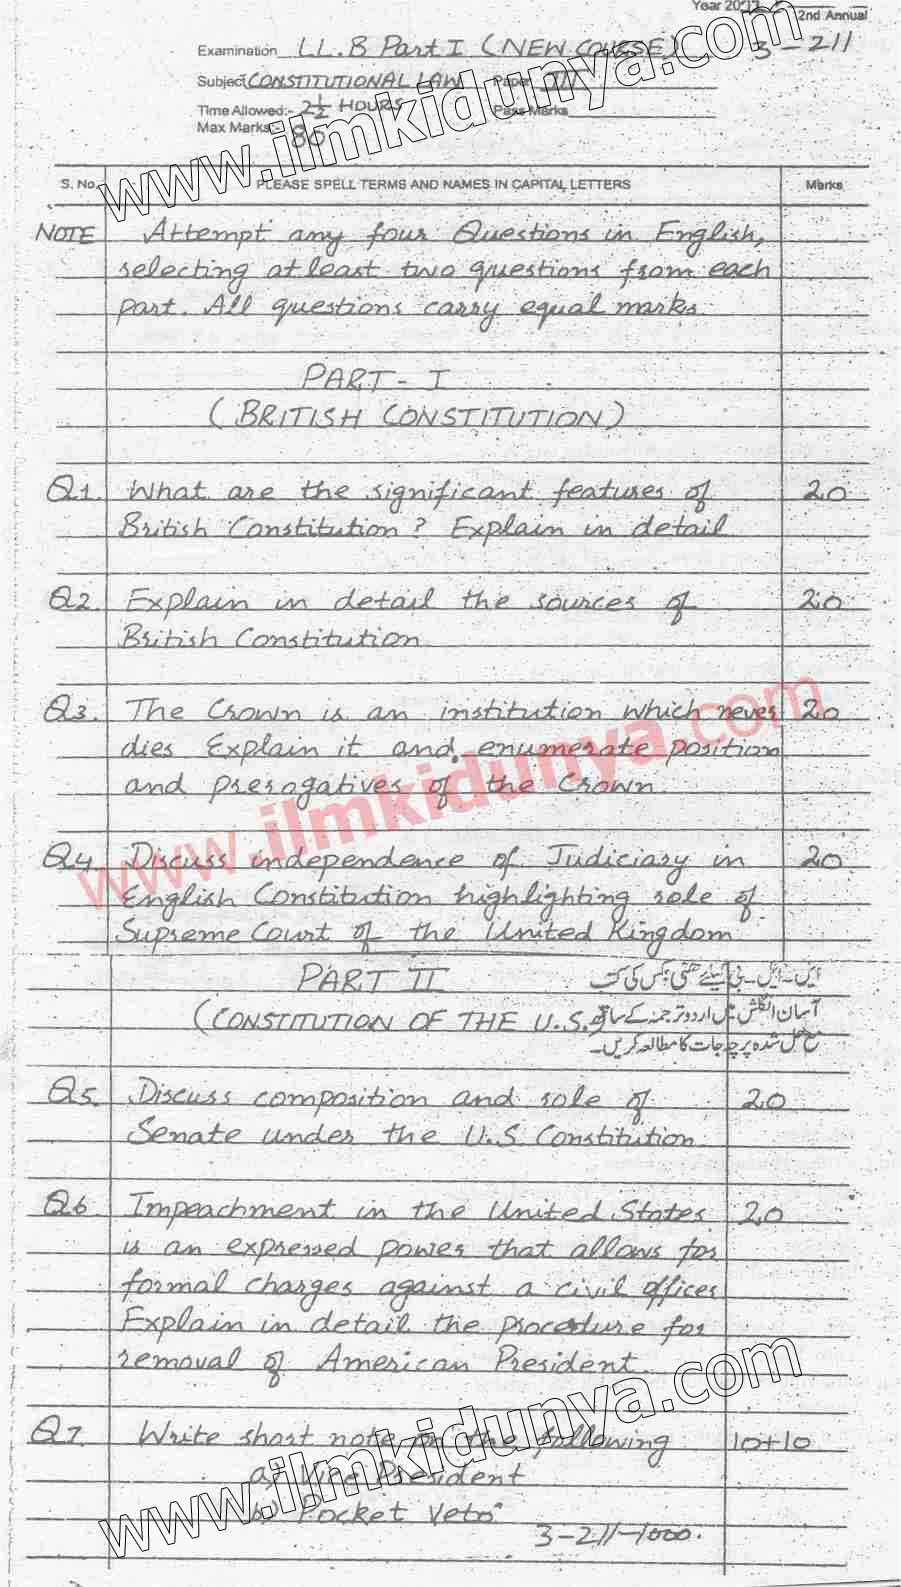 2nd Annual
Examination LL.B Part I (NEW COURSE) 3-211
Subject CONSTITUTIONAL LAW Paper III
Time Allowed:- 2½ HOURS Pass Marks
Max Marks:- 80
S. No. PLEASE SPELL TERMS AND NAMES IN CAPITAL LETTERS Marks
NOTE Attempt any four Questions in English,
selecting at least two questions from each
part. All questions carry equal marks.
PART-I
(BRITISH CONSTITUTION)
Q1. What are the significant features of 20
British Constitution? Explain in detail
Q2. Explain in detail the sources of 20
British Constitution
Q3. The Crown is an institution which never 20
dies Explain it and enumerate position
and prerogatives of the Crown.
Q4. Discuss independence of Judiciary in 20
English Constitution highlighting role of
Supreme Court of the United Kingdom
PART II
(CONSTITUTION OF THE U.S.)
آسان انگلش میں اردو ترجمہ کے ساتھ
حل شدہ پرچہ جات کا مطالعہ کریں۔
Q5. Discuss composition and role of 20
Senate under the U.S Constitution
Q6. Impeachment in the United States 20
is an expressed power that allows for
formal charges against a civil officer
Explain in detail the procedure for
removal of American President.
Q7. Write short note on the following 10+10
a) Vice President
b) Pocket Veto
3-211-1000.
www.ilmkidunya.com
www.ilmkidunya.com
www.ilmkidunya.com